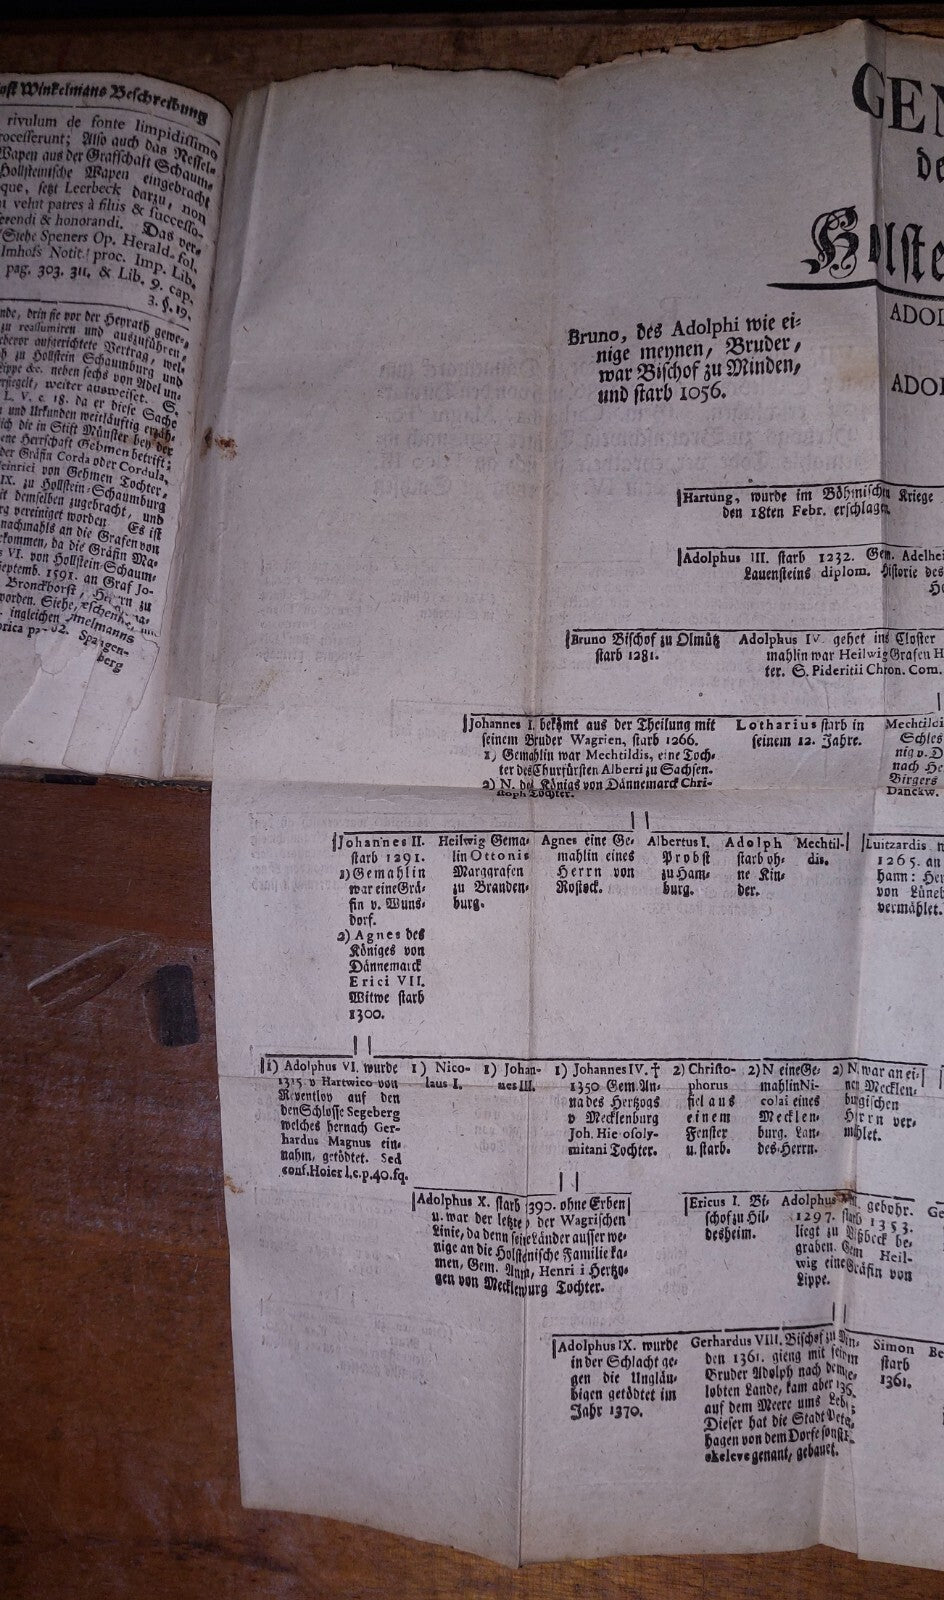 Winkelmans Beschreibung
rivulum de fonte limpidissimo
processerunt; Also auch das Nessel-
Wapen aus der Graffschaft Schaum-
Hollsteinische Wapen eingebracht
que, setzt Leerbeck darzu, non
velut patres à filiis & successo-
& honorandi. Das ver-
Siehe Speners Op. Herald. fol.
Imhofs Notit. proc. Imp. Lib.
pag. 303. 311. & Lib. 9. cap.
3. §. 19.
drin sie vor der Heyrath gewe-
zu reassumiren und auszuführen,
aufgerichtete Vertrag, wel-
zu Hollstein Schaumburg und
Lippe &c. neben sechs von Adel un-
weiter ausweiset. S.
L. V. c. 18. da er diese Sache
und Urkunden weitläuftig
die in Stift Münster bey der
Herrschaft Gehmen betrift;
der Gräfin Corda oder Cordula,
von Gehmen Tochter,
IX. zu Hollstein-Schaumburg
demselben zugebracht, und
vereiniget worden. Es ist
nachmahls an die Grafen von
kommen, da die Gräfin Ma-
VI. von Hollstein-Schaum-
Septemb. 1591. an Graf Jo-
Bronckhorst, zu
worden. Siehe,
ingleichen
Spangen-
berg
GEN
de
Hollste
ADOL
ADOL
Bruno, des Adolphi wie ei-
nige meynen, Bruder,
war Bischof zu Minden,
und starb 1056.
Hartung, wurde im Böhmischen Kriege
den 18ten Febr. erschlagen.
Adolphus III. starb 1232. Gem. Adelhei
Lauensteins diplom. Historie des
Bruno Bischof zu Olmütz
starb 1281.
Adolphus IV. gehet ins Closter
mahlin war Heilwig Grafen H
ter. S. Pideritii Chron. Com.
Johannes I. bekömt aus der Theilung mit
seinem Bruder Wagrien, starb 1266.
1) Gemahlin war Mechtildis, eine Toch-
ter des Churfürsten Alberti zu Sachsen.
2) N. des Königs von Dännemarck Chri-
stoph Tochter.
Lotharius starb in
seinem 12. Jahre.
Mechtildi
Schles
nig v. D
nach He
Birgers
Danckw.
Johannes II.
starb 1291.
1) Gemahlin
war eine Grä-
fin v. Wuns-
dorf.
2) Agnes des
Königes von
Dännemarck
Erici VII.
Witwe starb
1300.
Heilwig Gema-
lin Ottonis
Marggrafen
zu Branden-
burg.
Agnes eine Ge-
mahlin eines
Herrn von
Rostock.
Albertus I.
Probst
zu Ham-
burg.
Adolph
starb oh-
ne Kin-
der.
Mechtil-
dis.
Luitzardis
1265. an
hann: Her
von Lüneb
vermählet.
1) Adolphus VI. wurde
1315. v Hartwico von
Reventlov auf den
den Schlosse Segeberg
welches hernach Ger-
hardus Magnus ein-
nahm, getödtet. Sed
conf. Hoier l. c. p. 40. sq.
1) Nico-
laus I.
1) Johan-
nes III.
1) Johannes IV. †
1350 Gem. An-
na des Hertzogs
v Mecklenburg
Joh. Hie osoly-
mitani Tochter.
2) Christo-
phorus
fiel aus
einem
Fenster
u. starb.
2) N eine Ge-
mahlin Ni-
colai eines
Mecklen-
burg. Lan-
des-Herrn.
2) N. war an ei-
nen Mecklen-
burgischen
Herrn ver-
mählet.
Adolphus X. starb 1390. ohne Erben
u. war der letzte der Wagrischen
Linie, da denn seine Länder ausser we-
nige an die Holsteinische Familie ka-
men, Gem. Anna, Henri i Hertzo-
gen von Mecklenburg Tochter.
Ericus I. Bi-
schof zu Hil-
desheim.
Adolphus VII. gebohr.
1297. starb 1353.
liegt zu be-
graben. Gem Heil-
wig eine Gräfin von
Lippe.
Ge
Adolphus IX. wurde
in der Schlacht ge-
gen die Ungläu-
bigen getödtet im
Jahr 1370.
Gerhardus VIII. Bischof zu Min-
den 1361. gieng mit seinem
Bruder Adolph nach dem ge-
lobten Lande, kam aber
auf dem Meere ums Leben.
Dieser hat die Stadt Peters-
hagen von dem Dorfe sonst
genant, gebauet.
Simon
starb
1361.
Be